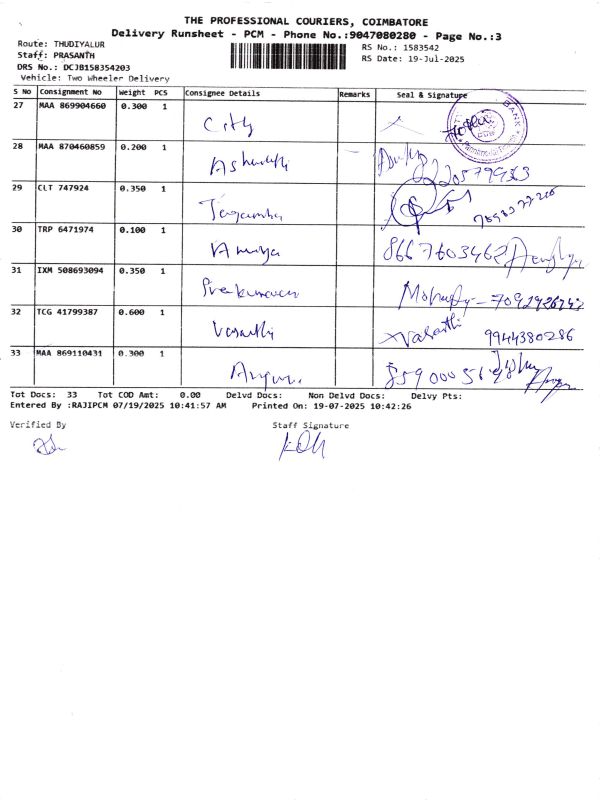 THE PROFESSIONAL COURIERS, COIMBATORE
Delivery Runsheet - PCM - Phone No.:9047080280 - Page No.:3
Route: THUDIYALUR
Staff: PRASANTH
DRS No.: DCJB158354203
Vehicle: Two Wheeler Delivery
RS No.: 1583542
RS Date: 19-Jul-2025
S No Consignment No Weight PCS Consignee Details Remarks Seal & Signature
27 MAA 869904660 0.300 1 City BANK
28 MAA 870460859 0.200 1
29 CLT 747924 0.350 1
30 TRP 6471974 0.100 1 8667603462
31 IXM 508693094 0.350 1
32 TCG 41799387 0.600 1 Vasanthi Vasanthi 9944380286
33 MAA 869110431 0.300 1
Tot Docs: 33 Tot COD Amt: 0.00 Delvd Docs: Non Delvd Docs: Delvy Pts:
Entered By :RAJIPCM 07/19/2025 10:41:57 AM Printed On: 19-07-2025 10:42:26
Verified By Staff Signature